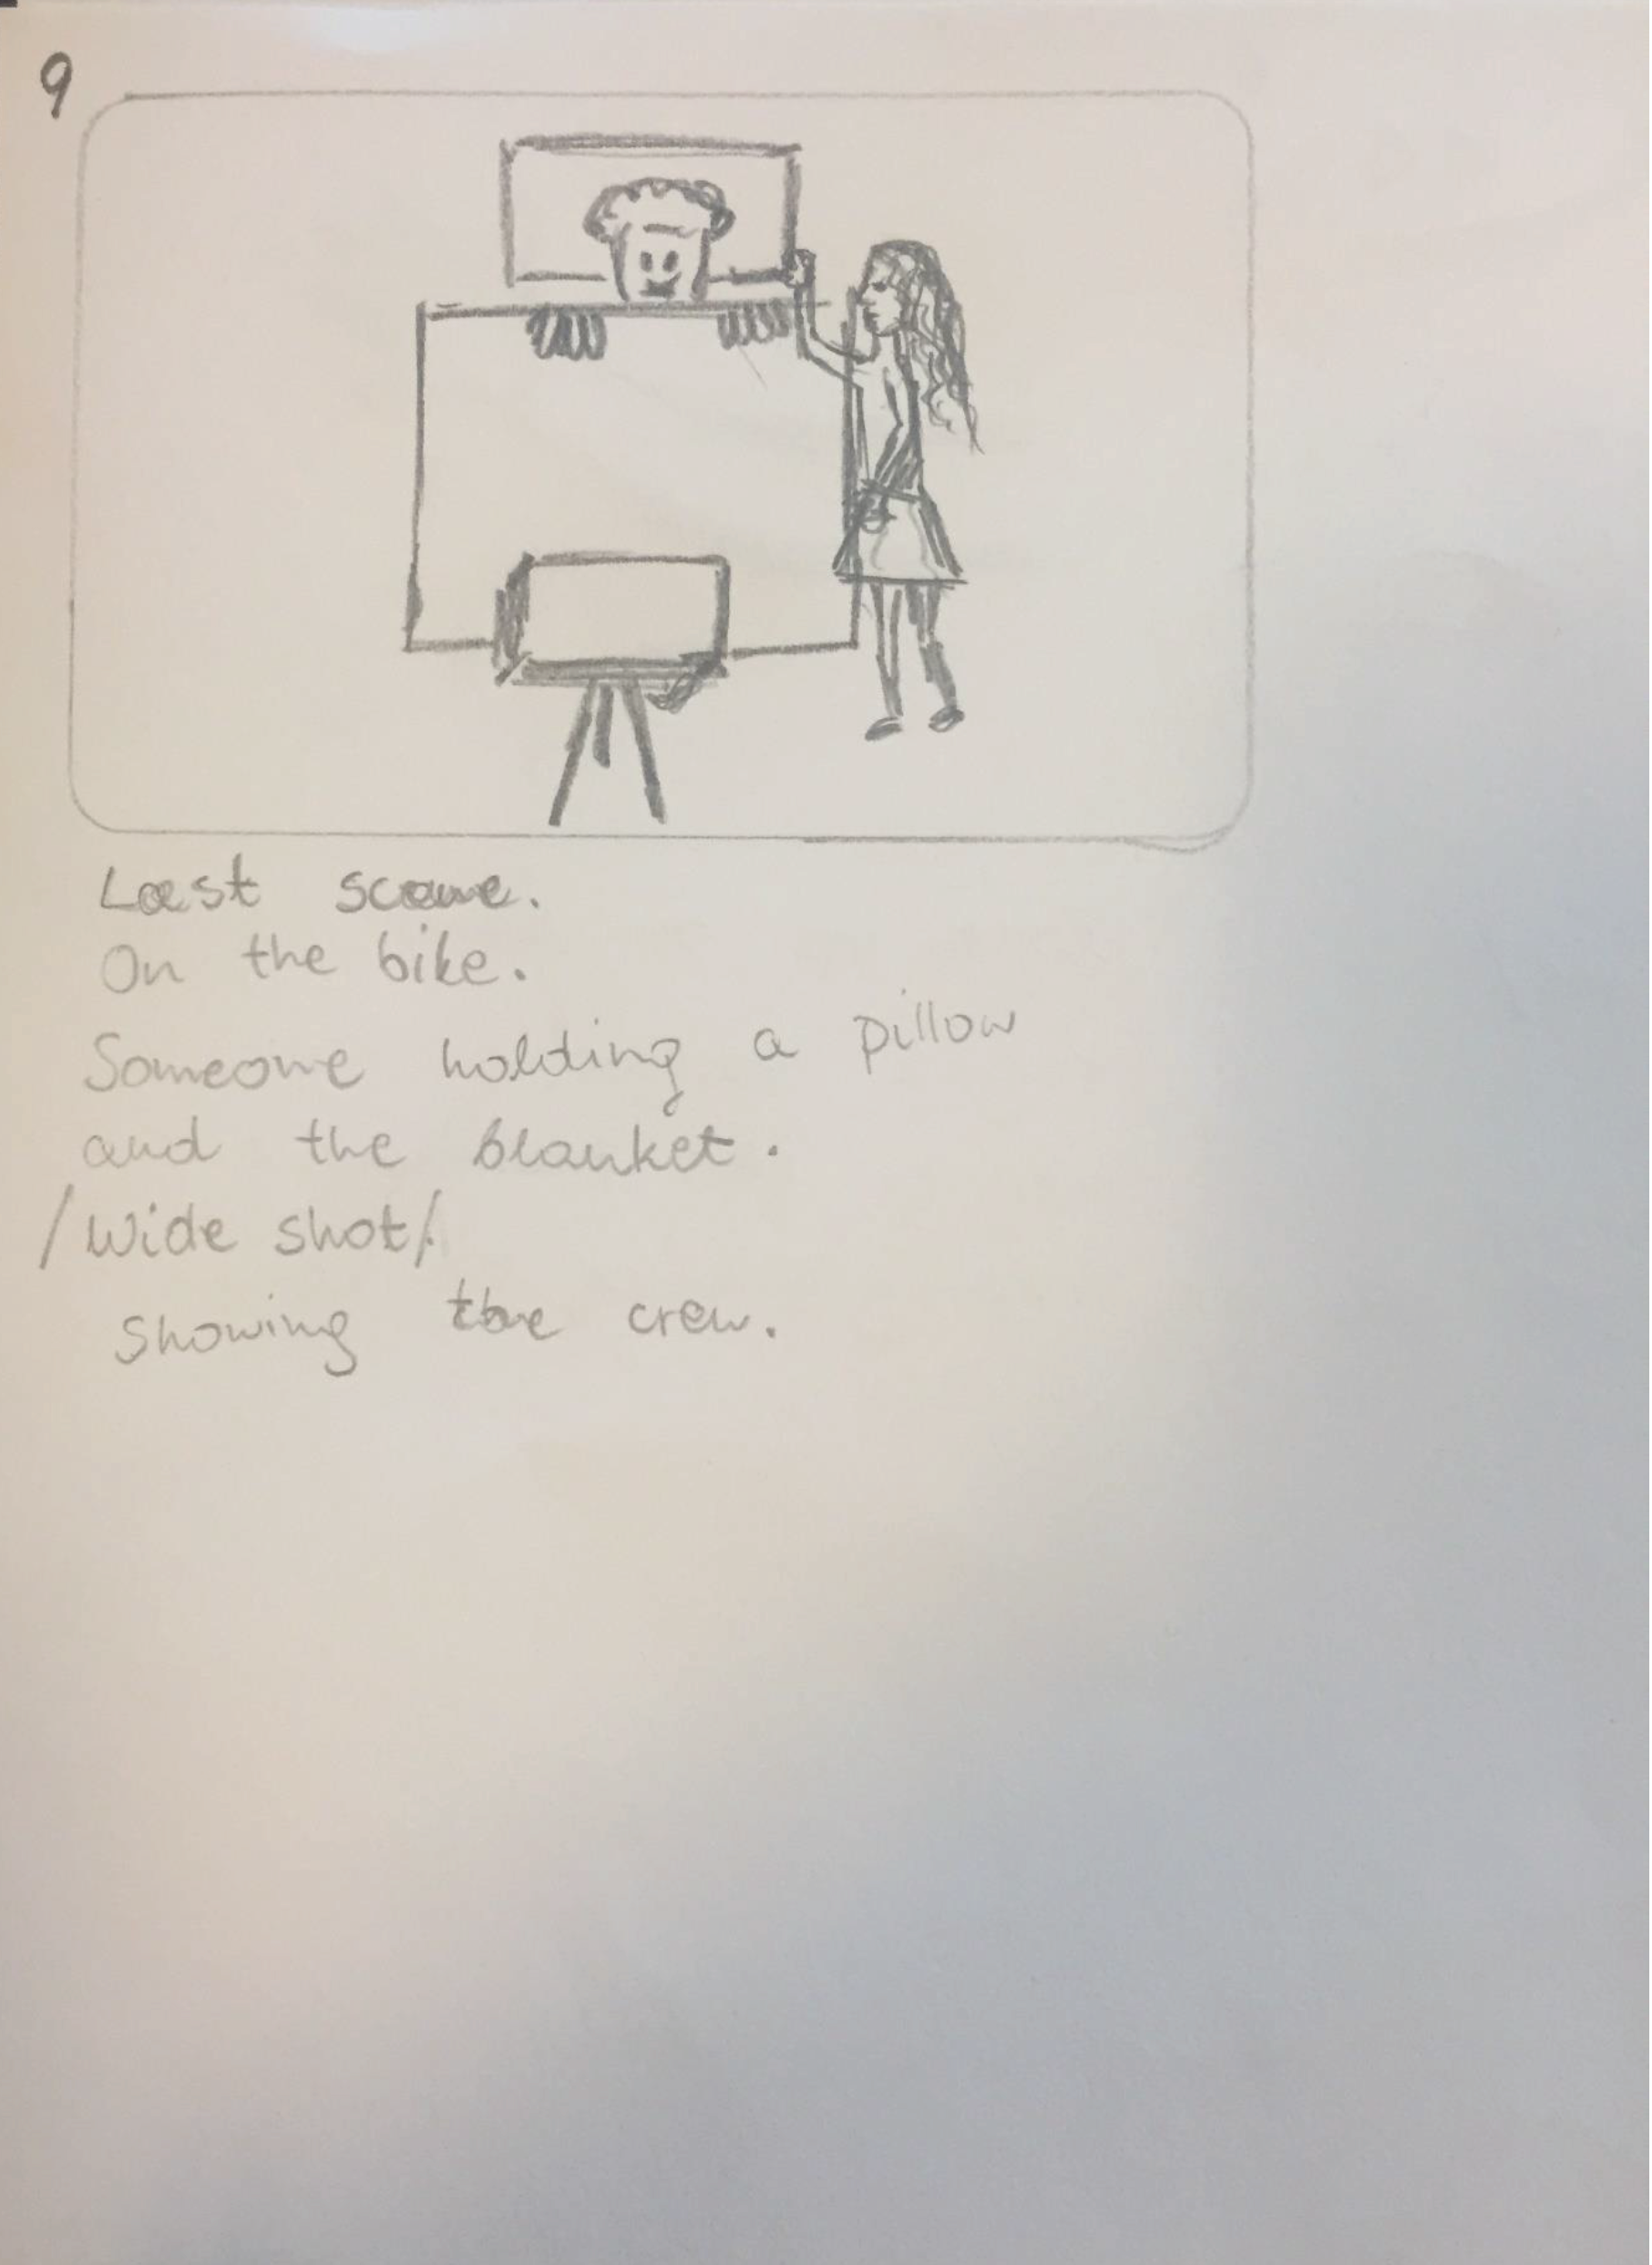 9
Last scene.
On the bike.
Someone holding a pillow
and the blanket.
/Wide shot/.
showing the crew.